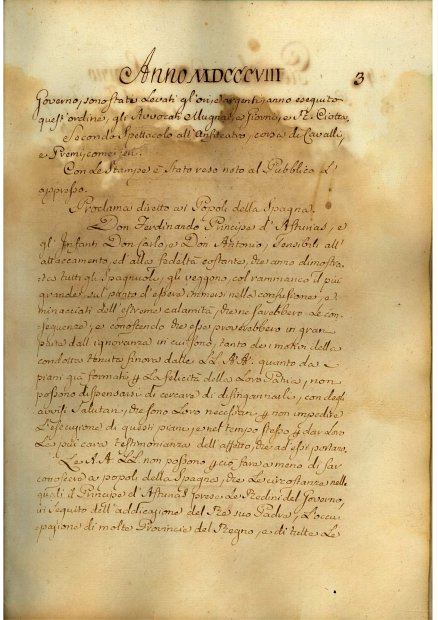 Anno MDCCCVIII 3
Governo, sono state levati gl'ori, e argenti, anno eseguito
quest'ordine, gli Avvocati Mugna, a fiorni, e Ciotta,
Secondo Spettacolo all'Anfiteatro, corsa di Cavalli,
e Premj, come jeri.
Con le Stampe è Stato reso noto al Pubblico L'
appresso.
Proclama diretto ai Popoli della Spagna.
Don Ferdinando Principe d'Asturias, e
gl'Infanti Don Carlo, e Don Antonio, Sensibili all'
attaccamento, ed alla fedeltà costante, che anno dimostra-
ta tutti gli Spagnuoli, gli veggono, col rammarico il più
grande, sul punto d'essere immersi nella confusione, e
minacciati dell'estreme calamità, che ne sarebbero le con-
sequenze, e conoscendo che esse proverebbero in gran
parte dall'ignoranza in cui sono, tanto dei motivi della
condotta tenuta finora dalle LL. AA. quanto da
piani già formati p La felicità della Loro Patria, non
possono dispensarsi di cercare di disingannali, con degl
avvisi Salutari, che sono Loro necessari p non impedire
l'esecuzione di questi piani, e nel tempo stesso p dar Loro
La più cara testimonianza dell'affetto, che ad essi portano.
Le AA. LL. non possono p ciò fare a meno di far
conoscere a popoli della Spagna, che Le circostanze nelle
quali il Principe d'Asturias prese Le Redini del Governo,
in seguito dell'addicazione del Re suo Padre, L'occu-
pazione di molte Provincie del Regno, e di tutte Le